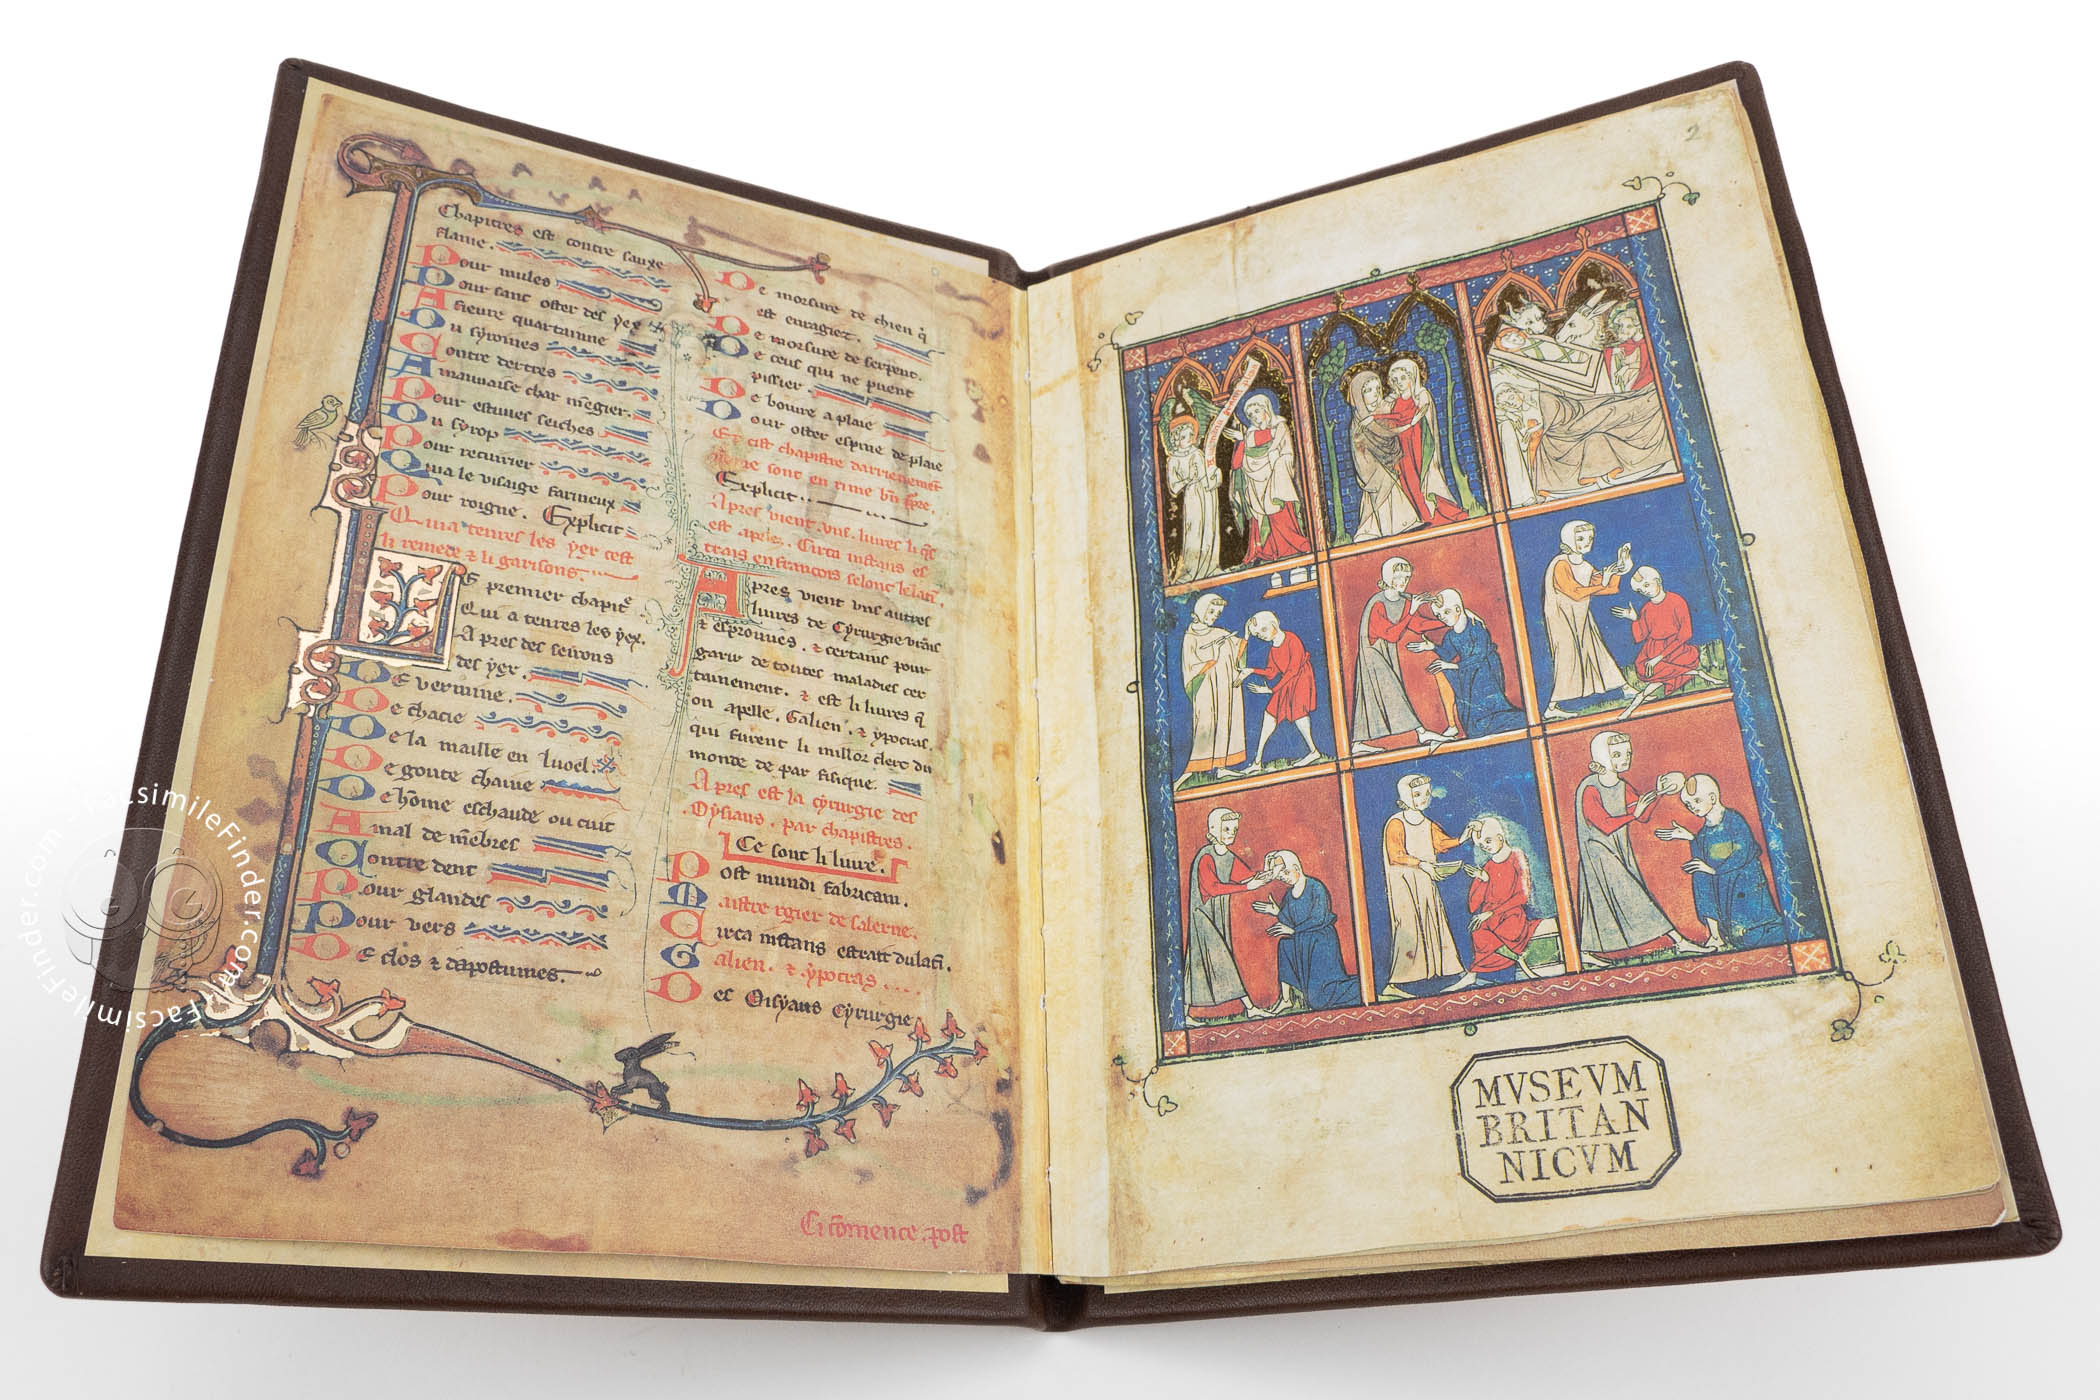 Chapitres est contre sause
flame.
Pour mules
Pour sanc oster des yex
A fieure quartainne
Du syromes
Contre dertres
A mauuaise char mēgier.
Pour estuues seiches
Du syrop
Pour recurier
Qui a le uisaige farineux
Pour roigne. Explicit
Qui a tenres les yex cest
li remede & li garisons.
Le premier chapitᵉ
Qui a tenres les yex.
Apres des seurons
des yex.
De vermine.
De chacie
De la maille en luoel.
De goute chaiue
De hōme eschaude ou cuit
A mal de mēbres
Contre dent
Pour glandes
Pour vers
De clos & dapostumes.
De morsure de chien q̄
est enragiez.
De morsure de serpent.
De ceus qui ne puent
pissier
De boiure a plaie
Pour oster espine de plaie
Et cist chapistre darrienemēt
sont en rime
Explicit.
Apres vient vns. liures li q̄s
est apelez. Circa instans et
trais en francois selonc le latī.
Apres vient vns autres
liures de Cyrurgie vrais
& esprouues. & certains pour
garir de toutes maladies cer
tainement. & est li liures q̄
on apelle. Galien. & ypocras.
qui furent li millor clerc du
monde de par fisique.
Apres est la cyrurgie des
Oysiaus. par chapistres.
Ce sont li liure.
Post mundi fabricam.
Maistre rogier de salerne.
Circa instans estrait du latī.
Galien. & ypocras ....
Des Oisyaus Cyrurgie
Ci cōmence. post
2
MVSEVM
BRITAN
NICVM
FacsimileFinder.com